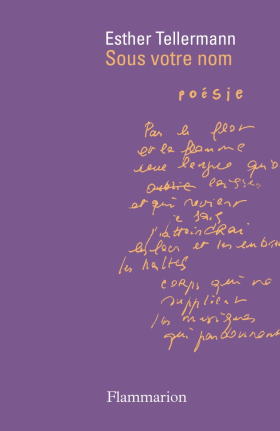 Esther Tellermann
Sous votre nom
poésie
Par la fleur
et la flamme
une langue qu'on
oublie laisse
et qui revient
je sais
j'atteindrai
et les
les haltes
corps qui ne
supplient
les musiques
qui pardonnent
Flammarion